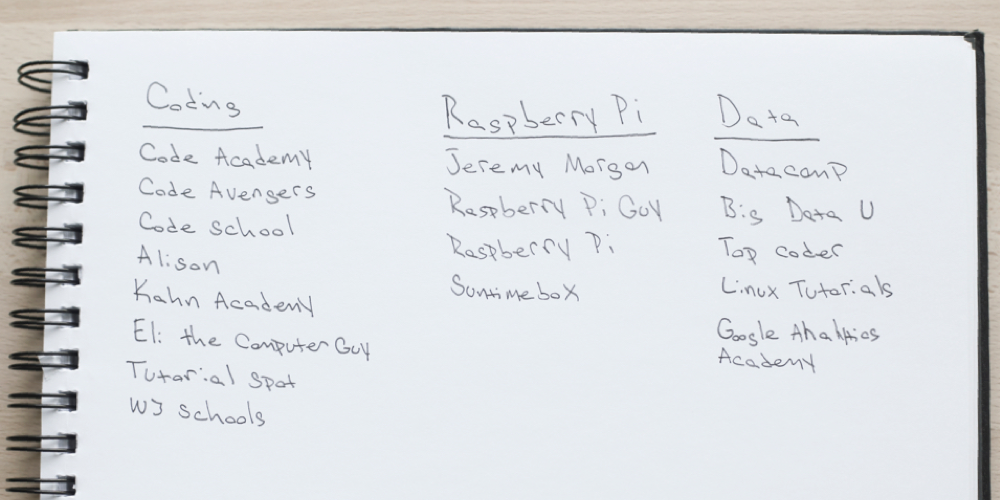 Coding
Code Academy
Code Avengers
Code School
Alison
Kahn Academy
Eli the Computer Guy
Tutorial Spot
W3 Schools
Raspberry Pi
Jeremy Morgan
Raspberry Pi Guy
Raspberry Pi
Suntimebox
Data
Datacamp
Big Data U
Top coder
Linux Tutorials
Google Analytics
Academy